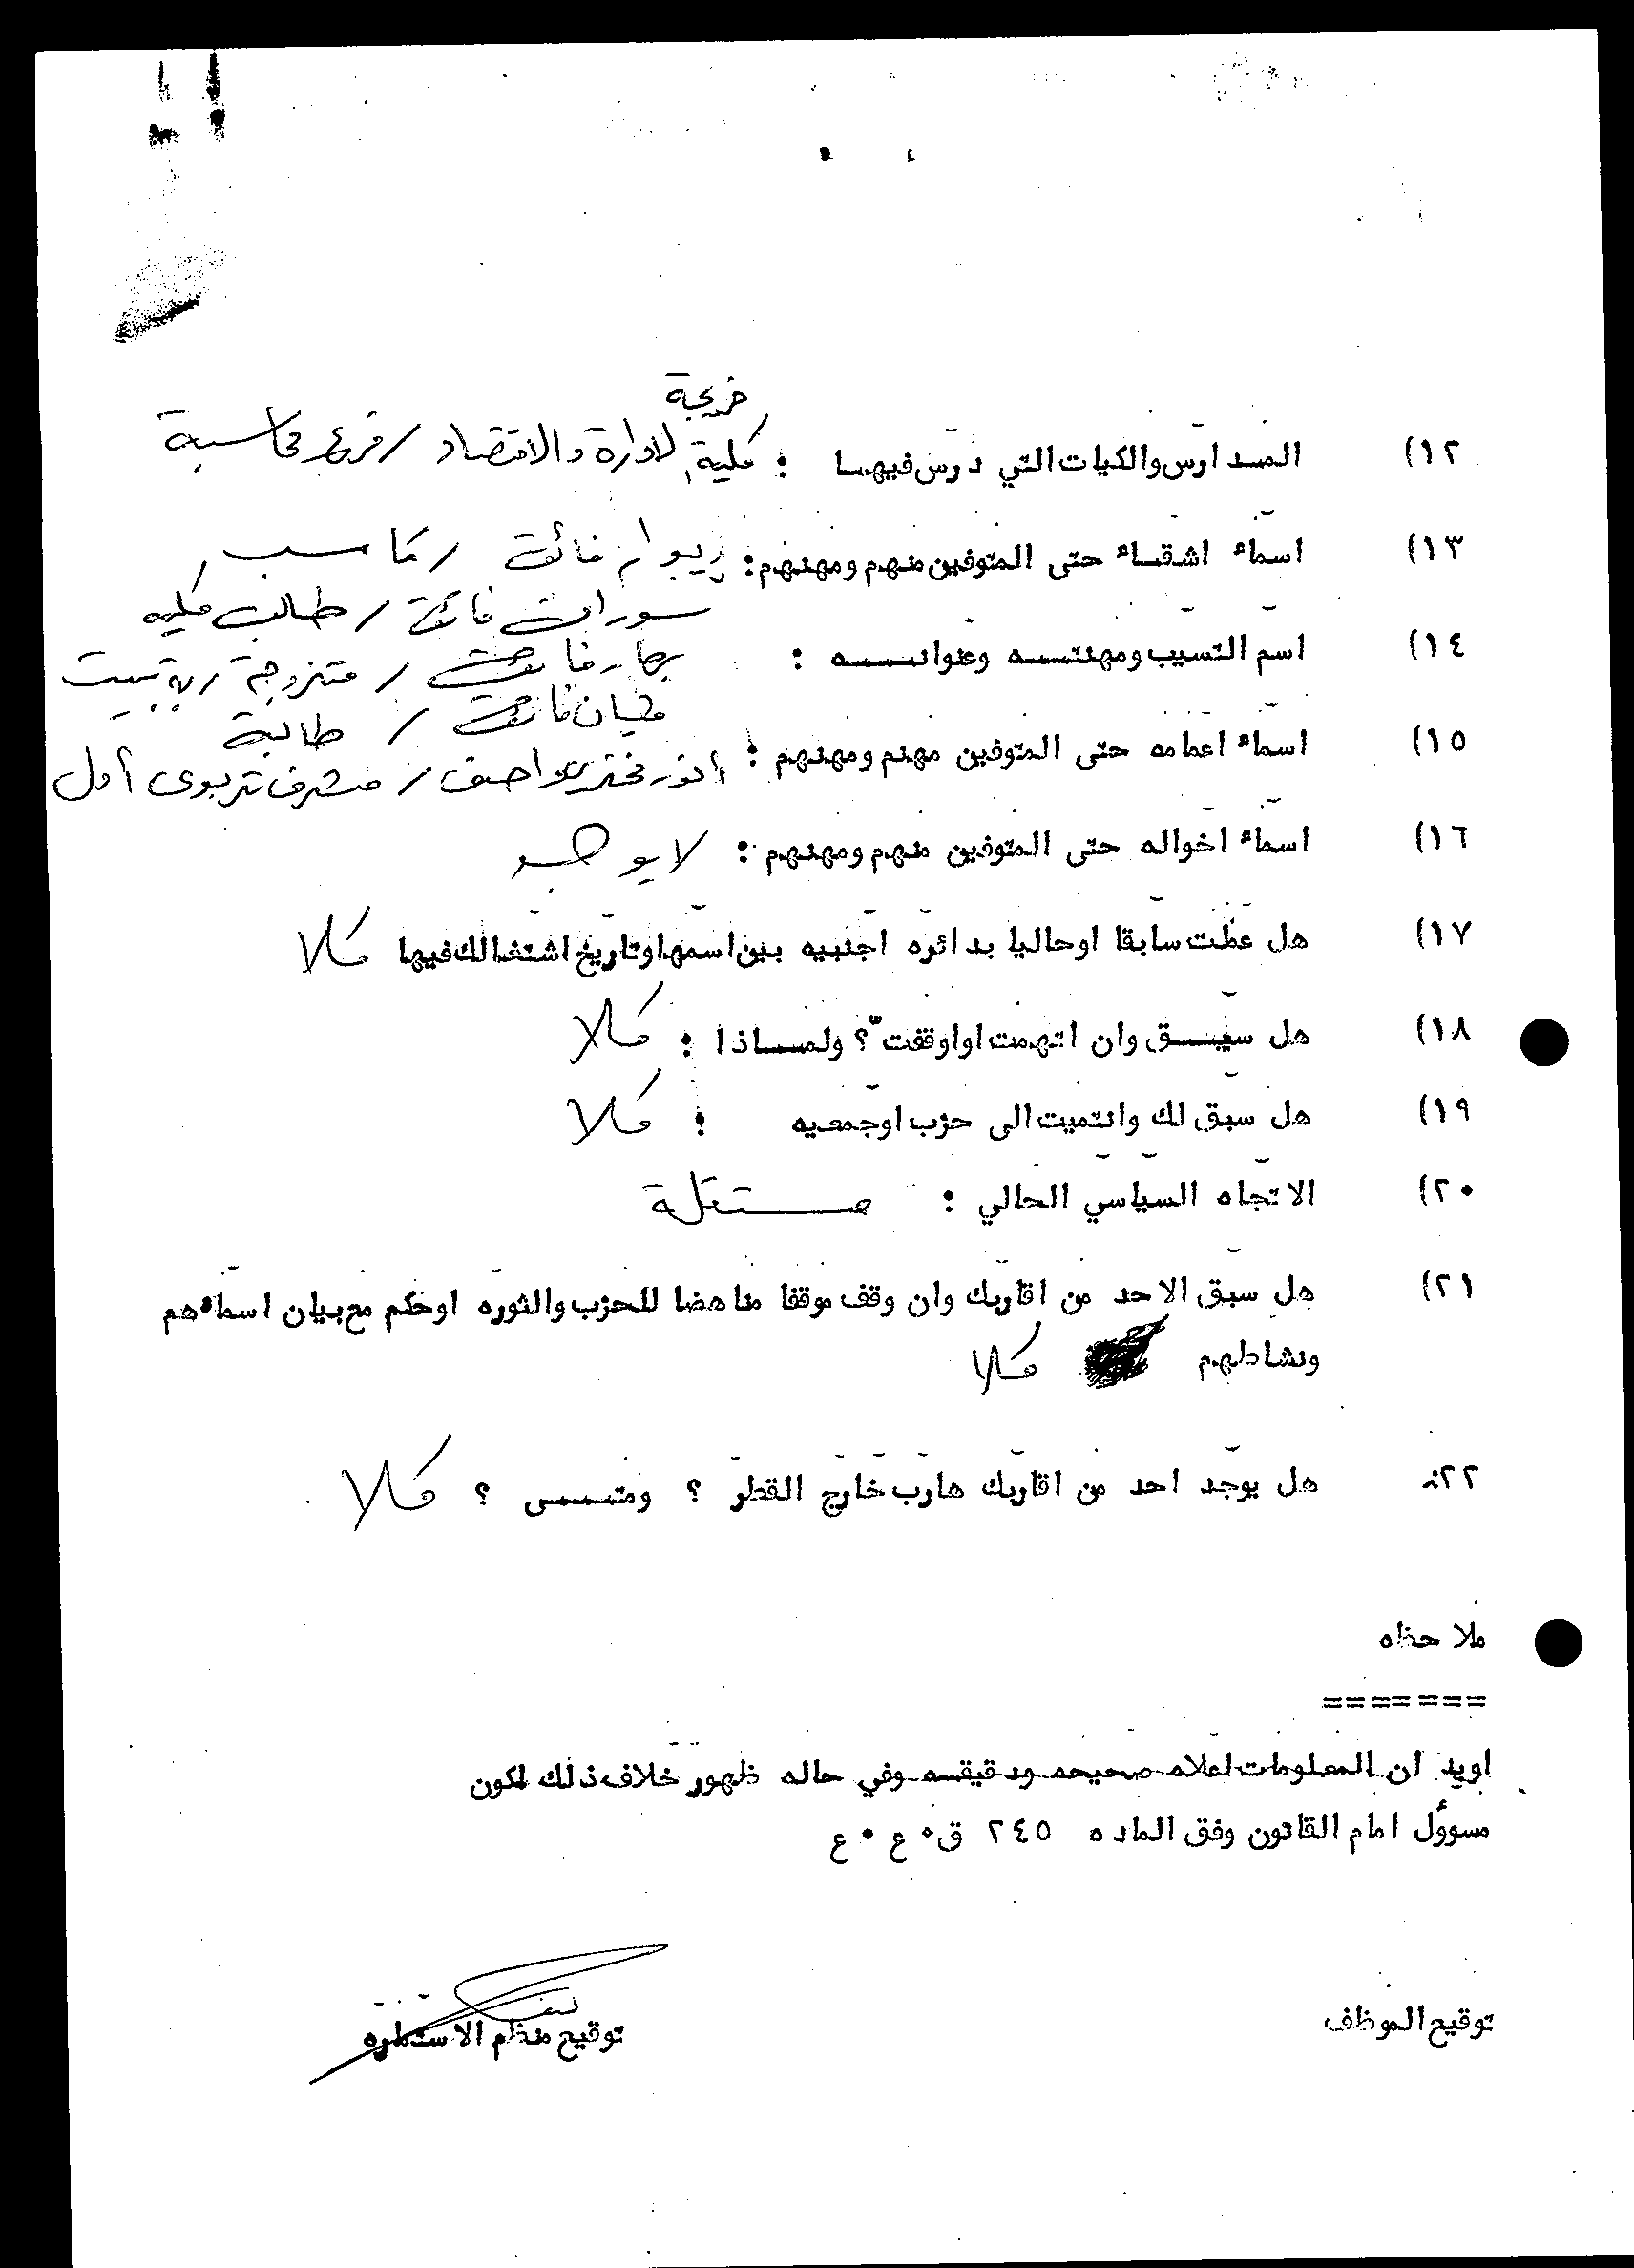 خريجة
١٢) المدارس والكيات التي درس فيها : كلية الادارة والاقتصاد / فرع محاسبة
١٣) اسماء اشقاء حتى المتوفين منهم ومهنهم : ريبوار فائق / كاسب
سوران فائق / طالب كلية
١٤) اسم النسيب ومهنته وعنوانه :
بهار فائق / متزوجة / ربة بيت
فائق / طالبة
١٥) اسماء اعمامه حتى المتوفين مهنم ومهنهم : انور واصف / مشرف تربوي أول
١٦) اسماء اخواله حتى المتوفين منهم ومهنهم : لا يوجد
١٧) هل عملت سابقا اوحاليا بدائره اجنبيه بين اسمها وتاريخ اشتغالك فيها كلا
١٨) هل سبق وان اتهمت اواوقفت ؟ ولماذا : كلا
١٩) هل سبق لك وانتميت الى حزب اوجمعيه : كلا
٢٠) الاتجاه السياسي الحالي : مستقلة
٢١) هل سبق الاحد من اقاربك وان وقف موقفا مناهضا للحزب والثوره اوحكم مع بيان اسماءهم
ونشاطهم كلا
٢٢) هل يوجد احد من اقاربك هارب خارج القطر ؟ ومتى ؟ كلا
ملاحظه
=======
اويد ان المعلومات اعلاه صحيحه ودقيقه وفي حاله ظهور خلاف ذلك اكون
مسوؤل امام القانون وفق الماده ٢٤٥ ق٠ع٠ع
توقيع الموظف
توقيع منظم الاستماره